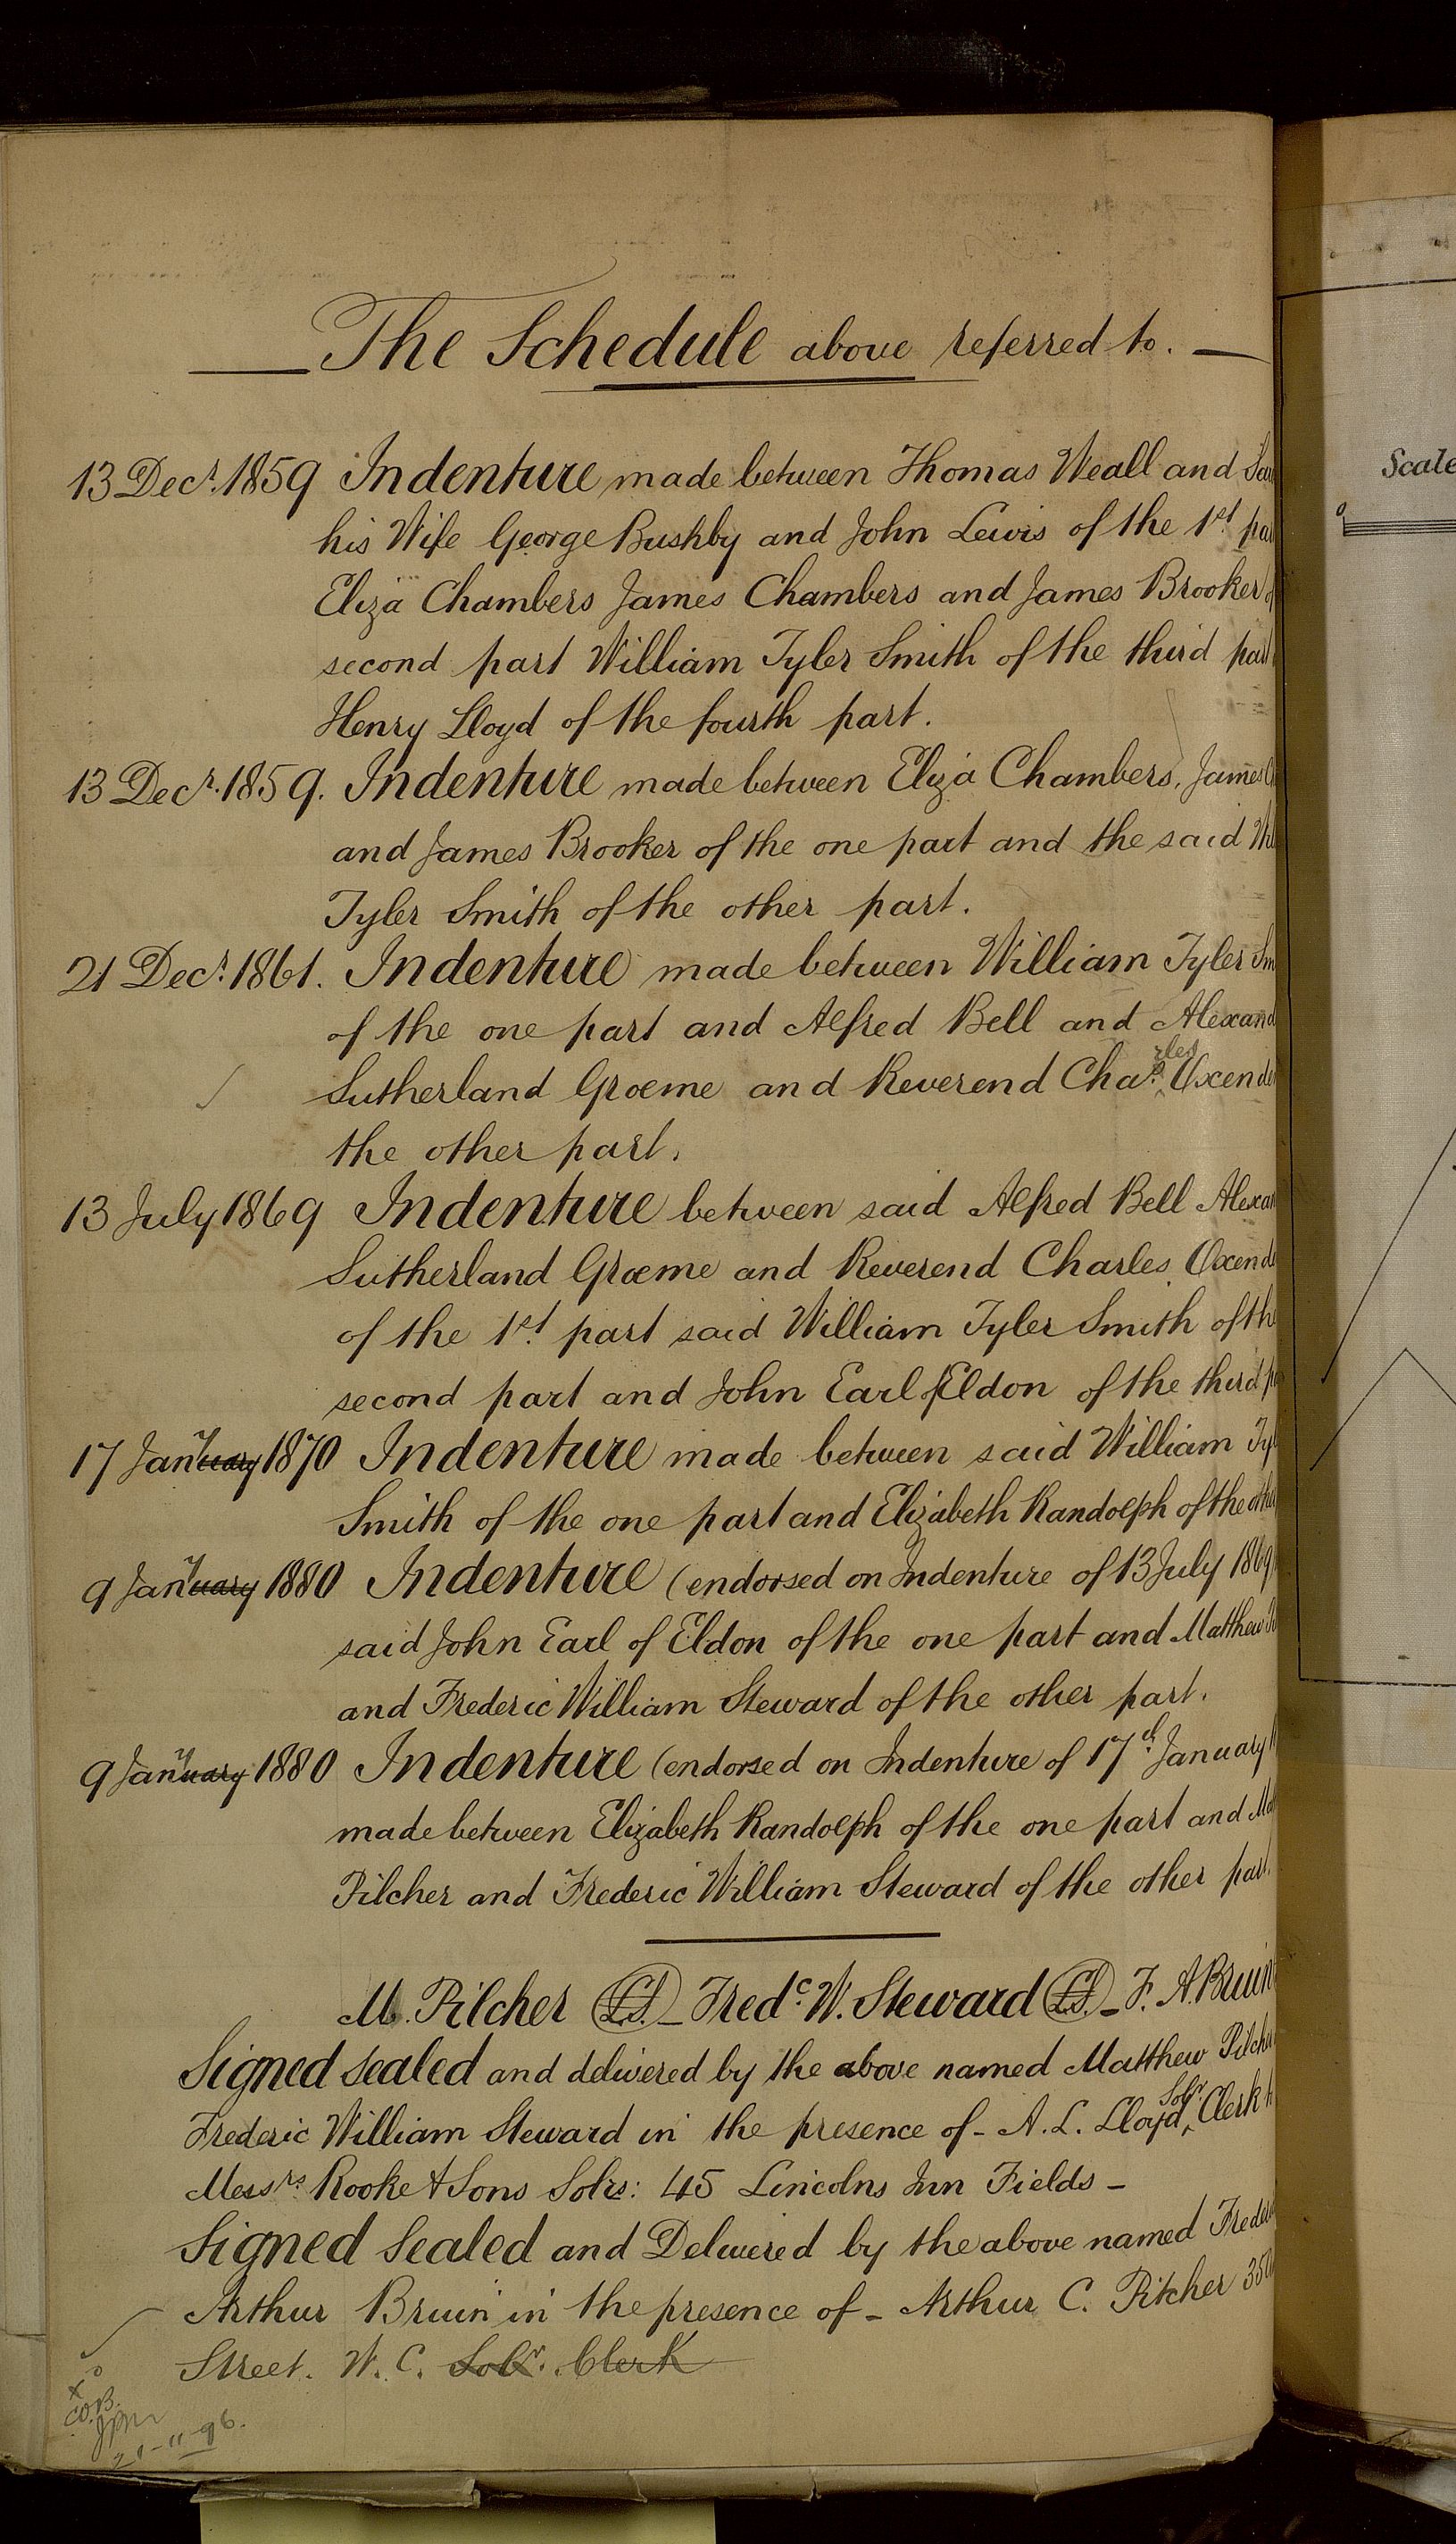 The Schedule above referred to.
13 Decr. 1859 Indenture made between Thomas Weall and
his Wife George Bushby and John Lewis of the 1st
Eliza Chambers James Chambers and James Brooker
second part William Tyler Smith of the third part
Henry Lloyd of the fourth part.
13 Decr. 1859. Indenture made between Eliza Chambers, James
and James Brooker of the one part and the said
Tyler Smith of the other part.
21 Decr. 1861. Indenture made between William Tyler
of the one part and Alfred Bell and
Sutherland Groeme and Reverend Chas. rles
the other part.
13 July 1869 Indenture between said Alfred Bell
Sutherland Groeme and Reverend Charles
of the 1st. part said William Tyler Smith of the
second part and John Earl of Eldon of the third
17 January 1870 Indenture made between said William
Smith of the one part and Elizabeth Randolph of the other
9 January 1880 Indenture (endorsed on Indenture of 13 July 1869
said John Earl of Eldon of the one part and Matthew
and Frederic William Steward of the other part.
9 January 1880 Indenture (endorsed on Indenture of 17th January
made between Elizabeth Randolph of the one part and
Pilcher and Frederic William Steward of the other part.
M. Pilcher L.S. – Fredc. W. Steward L.S. – F. A. Bruin
Signed sealed and delivered by the above named Matthew Pilcher
Frederic William Steward in the presence of – A. L. Lloyd, Solr. Clerk
Messrs Rooke & Sons Solrs: 45 Lincolns Inn Fields –
Signed Sealed and Delivered by the above named
Arthur Bruin in the presence of – Arthur C. Pilcher
Street. W. C. Solr. Clerk
C.O.B.
21-11-96.
Scale
0